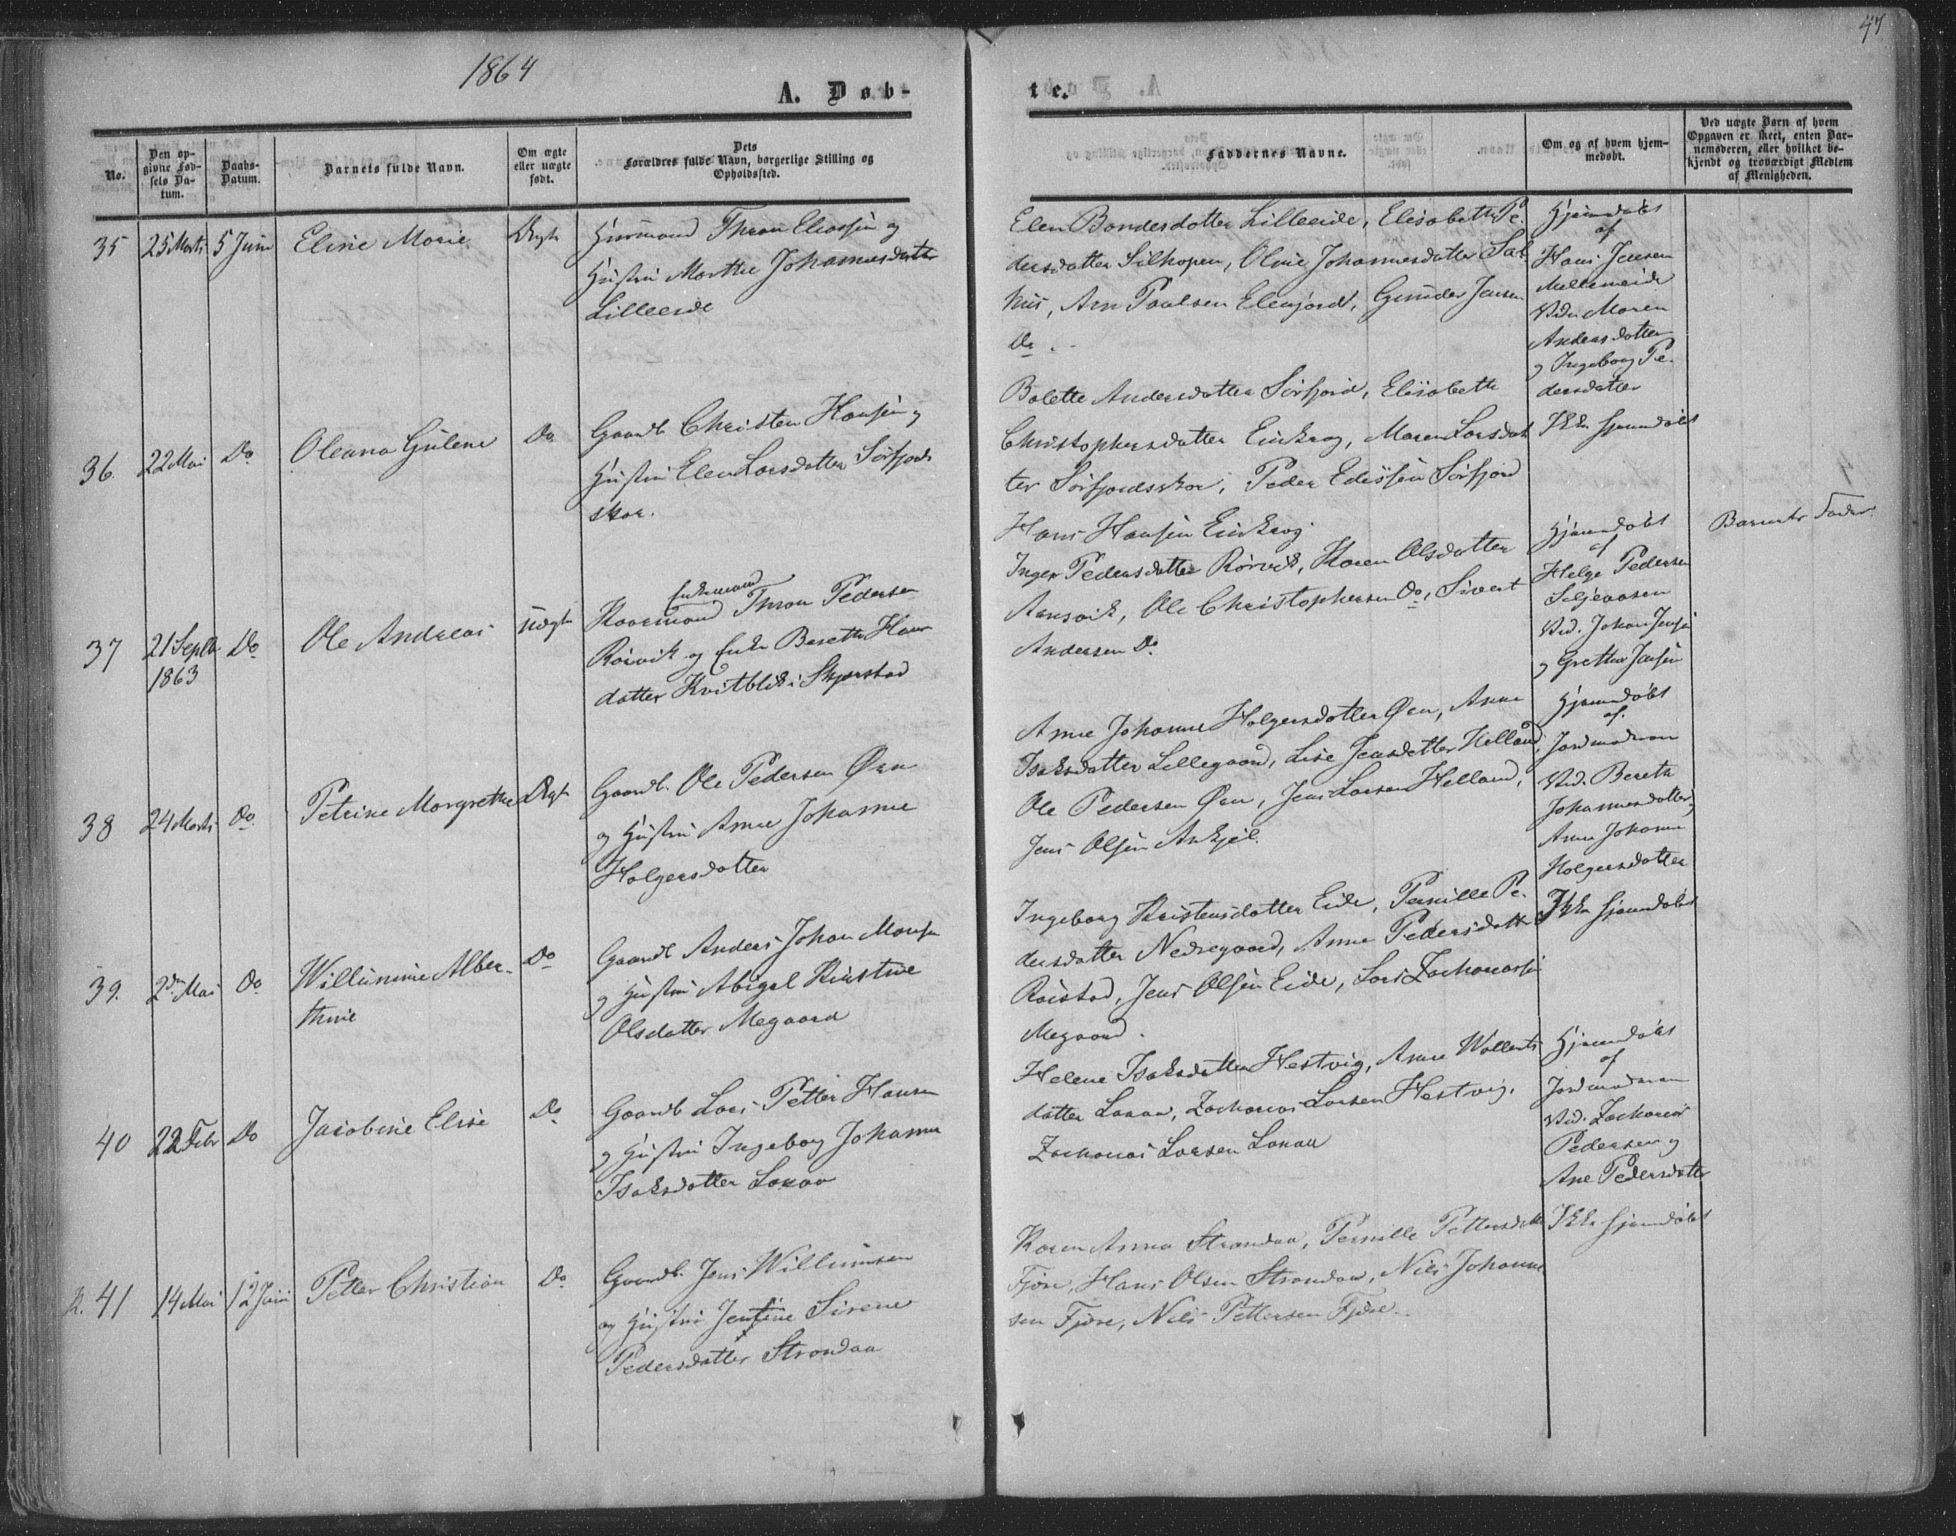 1864
47
A. Døb-
te.
No.
Den op-
givne Fød-
sels Da-
tum.
Daabs-
Datum.
Barnets fulde Navn.
Om ægte
eller uægte
født.
Dets
Forældres fulde Navn, borgerlige Stilling og
Opholdssted.
Faddernes Navne.
Om og af hvem hjem-
medøbt.
Ved uægte Børn af hvem
Opgaven er skeet, enten Bar-
nemoderen, eller hvilket be-
kjendt og troværdigt Medlem
af Menigheden.
35
25 Marts
5 Juni
Eline Marie
Ægte
Huusmand Thron Eliassen og
Hustru Marthe Johannesdatter
Lilleeide
Elen Bondesdatter Lilleeide, Elisabeth Pe-
dersdatter Silhopen, Oline Johannesdatter Sal-
hus, Arn Paulsen Elvefjord, Gunder Jensen
Do.
Hjemdøbt
af
Hans Jensen
Mellemeide
Vid. Maren
Andersdatter
og Ingeborg Pe-
dersdatter
36.
22 Mai
Do
Oleana Gulene
Do
Gaardb. Christen Hansen og
Hustru Elen Larsdatter Sørfjord-
skar.
Bolette Andersdatter Sørfjord, Elisabeth
Christophersdatter Einkrog, Maren Larsdat-
ter Sørfjordsskar, Peder Edissen Sørfjord
Hans Hansen Einkrog.
Ikke hjemdøbt
37
21 Septb.
1863
Do
Ole Andreas
Uægte
Enkemand
Kaarmand Thron Pedersen
Rørvik og Enke Bereth Hans-
datter Kvitblik i Skjerstad
Inger Pedersdatter Rørvik, Karen Olsdatter
Arnsvik, Ole Christophersen Do, Sivert
Andersen Do.
Hjemdøbt
af
Helge Pedersen
Seljeaasen
Vid. Johan Jensen
og Grethe Jensen
Barnets Fader.
38
24 Marts
Do.
Petrine Margrethe
Ægt
Gaardb. Ole Pedersen Øen
og Hustru Anne Johanne
Holgersdatter
Anne Johanne Holgersdatter Øen, Anne
Isaksdatter Lillegaard, Lise Jensdatter Helland,
Ole Pedersen Øen, Jens Larsen Helland,
Jens Olsen Arkjel.
Hjemdøbt
af.
Jordmoderen
Vid. Bereth
Johannesdatter,
Anne Johanne
Holgersdatter
39.
2den Mai
Do
Willumine Alber-
thine
Do
Gaardb Anders Johan Monsen
og Hustru Abigal Kirstine
Olsdatter Megaard
Ingeborg Kristensdatter Eide, Pernille Pe-
dersdatter Nedregaard, Anne Pedersdatter
Røistad, Jens Olsen Eide, Lars Zachariassen
Megaard.
Ikke hjemdøbt
40
22 Febr
Do
Jacobine Elise
Do
Gaardb Lars Petter Hansen
og Hustru Ingeborg Johanna
Isaksdatter Lakaa
Helene Isaksdatter Hestvig, Anne Wollerts-
datter Lakaa, Zacharias Larsen Hestvig,
Zacharias Larsen Lakaa
Hjemdøbt
af
Jordmoderen
Vid. Zacharias
Pedersen og
Ane Pedersdatter
R. 41
14 Mai
12 Juni
Petter Christian
Do
Gaardb. Jens Willumsen
og Hustru Jentine Sirene
Pedersdatter Strandaa
Karen Anna Strandaa, Pernille Pettersdatter
Fjøre, Hans Olsen Strandaa, Nils Johanne-
sen Fjøre, Nils Pettersen Fjøre.
Ikke hjemdøbt